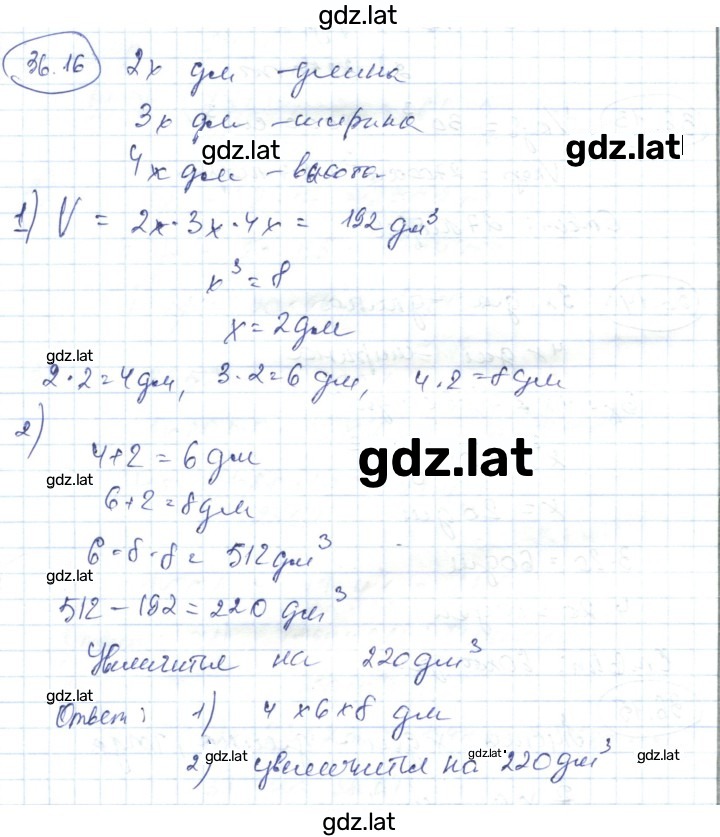 gdz.lat
36.16 2x дм - длина
3x дм - ширина
gdz.lat gdz.lat
4x дм - высота
1) V = 2x·3x·4x = 192 дм³
x³ = 8
x = 2 дм
gdz.lat
2·2=4 дм, 3·2=6 дм, 4·2=8 дм
2)
4+2 = 6 дм
gdz.lat
gdz.lat
6+2=8 дм
6·8·8 = 512 дм³
gdz.lat
512-192=220 дм³
Увеличится на 220 дм³
gdz.lat
Ответ: 1) 4×6×8 дм
gdz.lat gdz.lat gdz.lat
2) увеличится на 220 дм³
gdz.lat